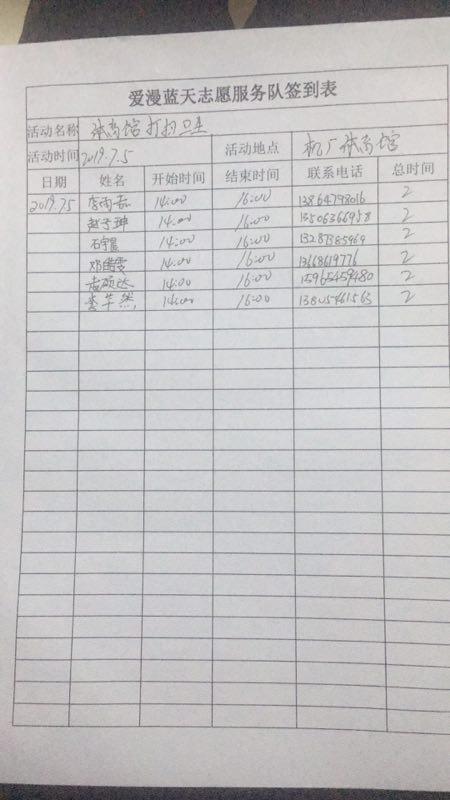 爱漫蓝天志愿服务队签到表
活动名称 体育馆打扫卫生
活动时间 2019.7.5 活动地点 机厂体育馆
日期 姓名 开始时间 结束时间 联系电话 总时间
2019.7.5 李雨茹 14:00 16:00 13864798016 2
赵子珅 14:00 16:00 13506366958 2
石宇晨 14:00 16:00 13287385969 2
邓皓雯 14:00 16:00 13668619776 2
孟硕达 14:00 16:00 15965459480 2
李芊然 14:00 16:00 13805461563 2